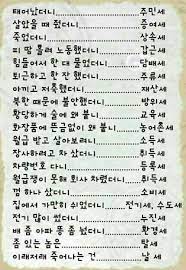 태어났더니..................주민세
살았을 때 줬더니..............증여세
죽었더니....................상속세
피 땀 흘려 노동했더니..........갑근세
힘들어서 한 대 물었더니........담배세
퇴근하고 한 잔 했더니..........주류세
아끼고 저축했더니.............재산세
북한 때문에 불안했더니.........방위세
황당하게 술에 왜 붙니..........교육세
화장품에 뜬금없이 왜 붙니......농어촌세
월급 받고 살아보려니...........소득세
장사하려고 차 샀더니...........취득세
차량번호 다니................등록세
월급쟁이 못해 회사 차렸더니.....법인세
껌 하나 샀더니...............소비세
집에서 가만히 쉬었더니.....전기세, 수도세
전기 많이 썼더니..............누진세
배 좀 아파 똥 좀 눴더니........환경세
좀 있는 놈은.................탈세
이래저래 죽어나는 건...........남 세